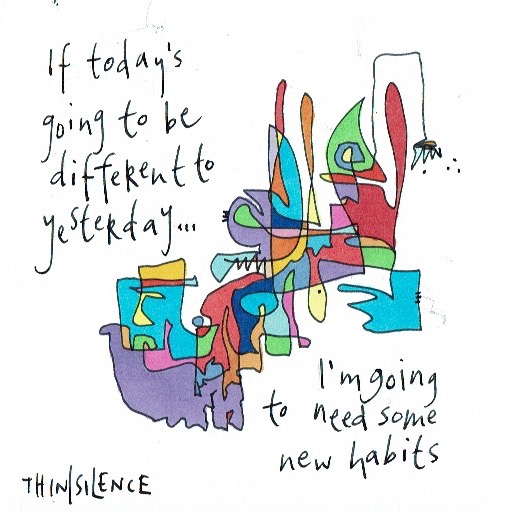 If today's
going to be
different to
yesterday...
I'm going
to need some
new habits
THIN|SILENCE